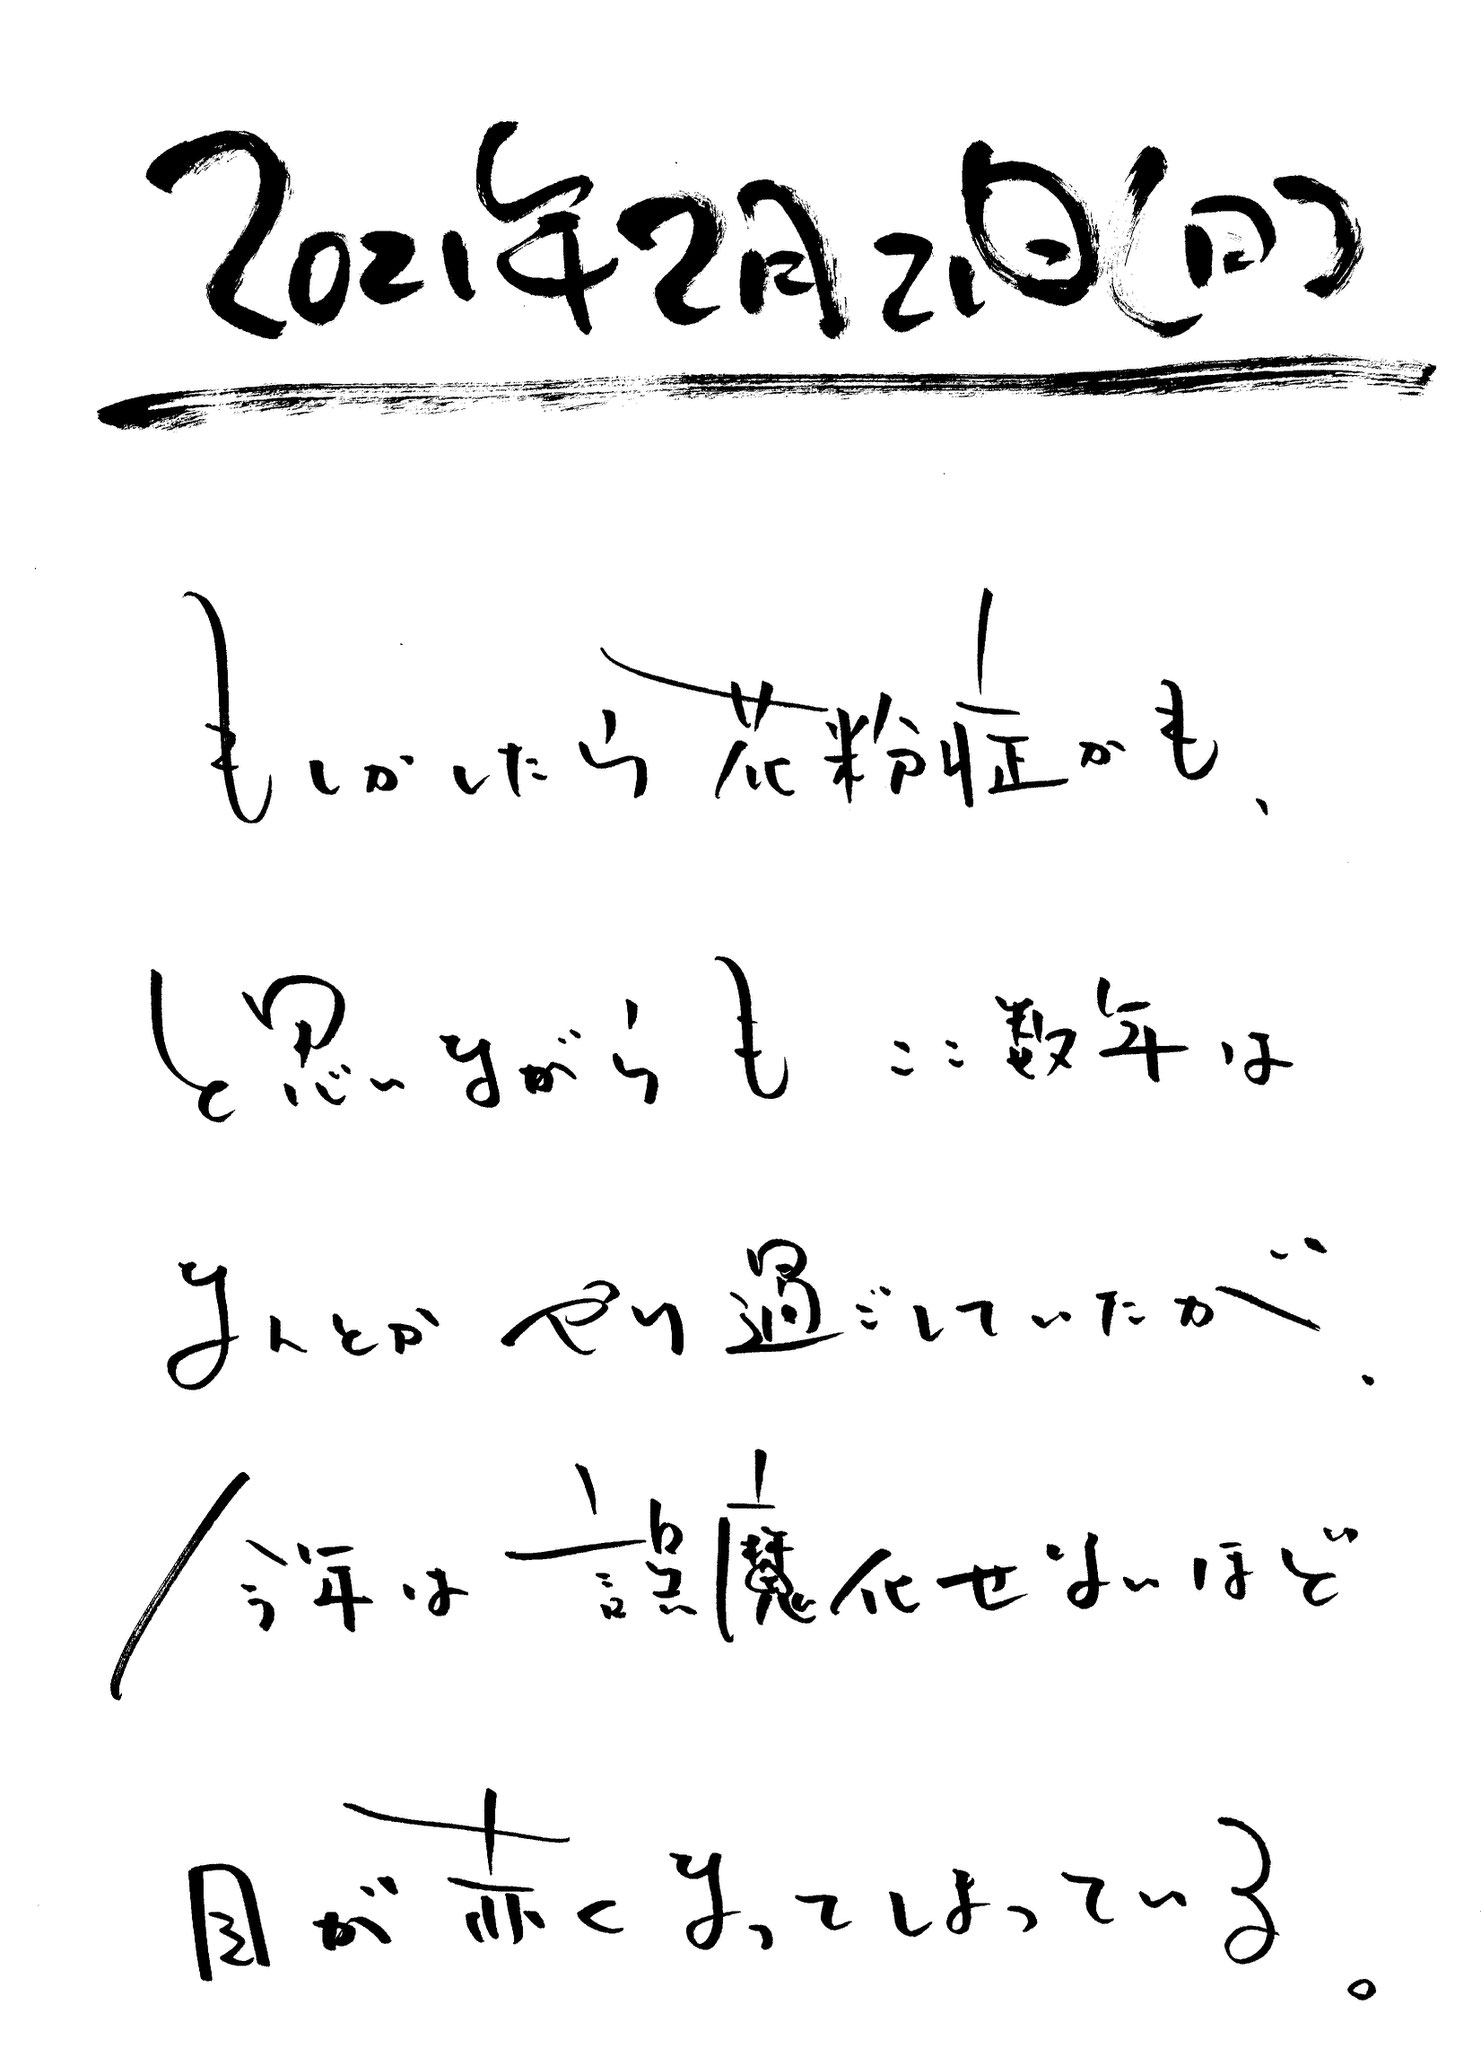 2021年2月21日(日)
もしかしたら花粉症かも、
と思いながらもここ数年は
なんとかやり過ごしていたが、
今年は誤魔化せないほど
目が赤くなってしまっている。